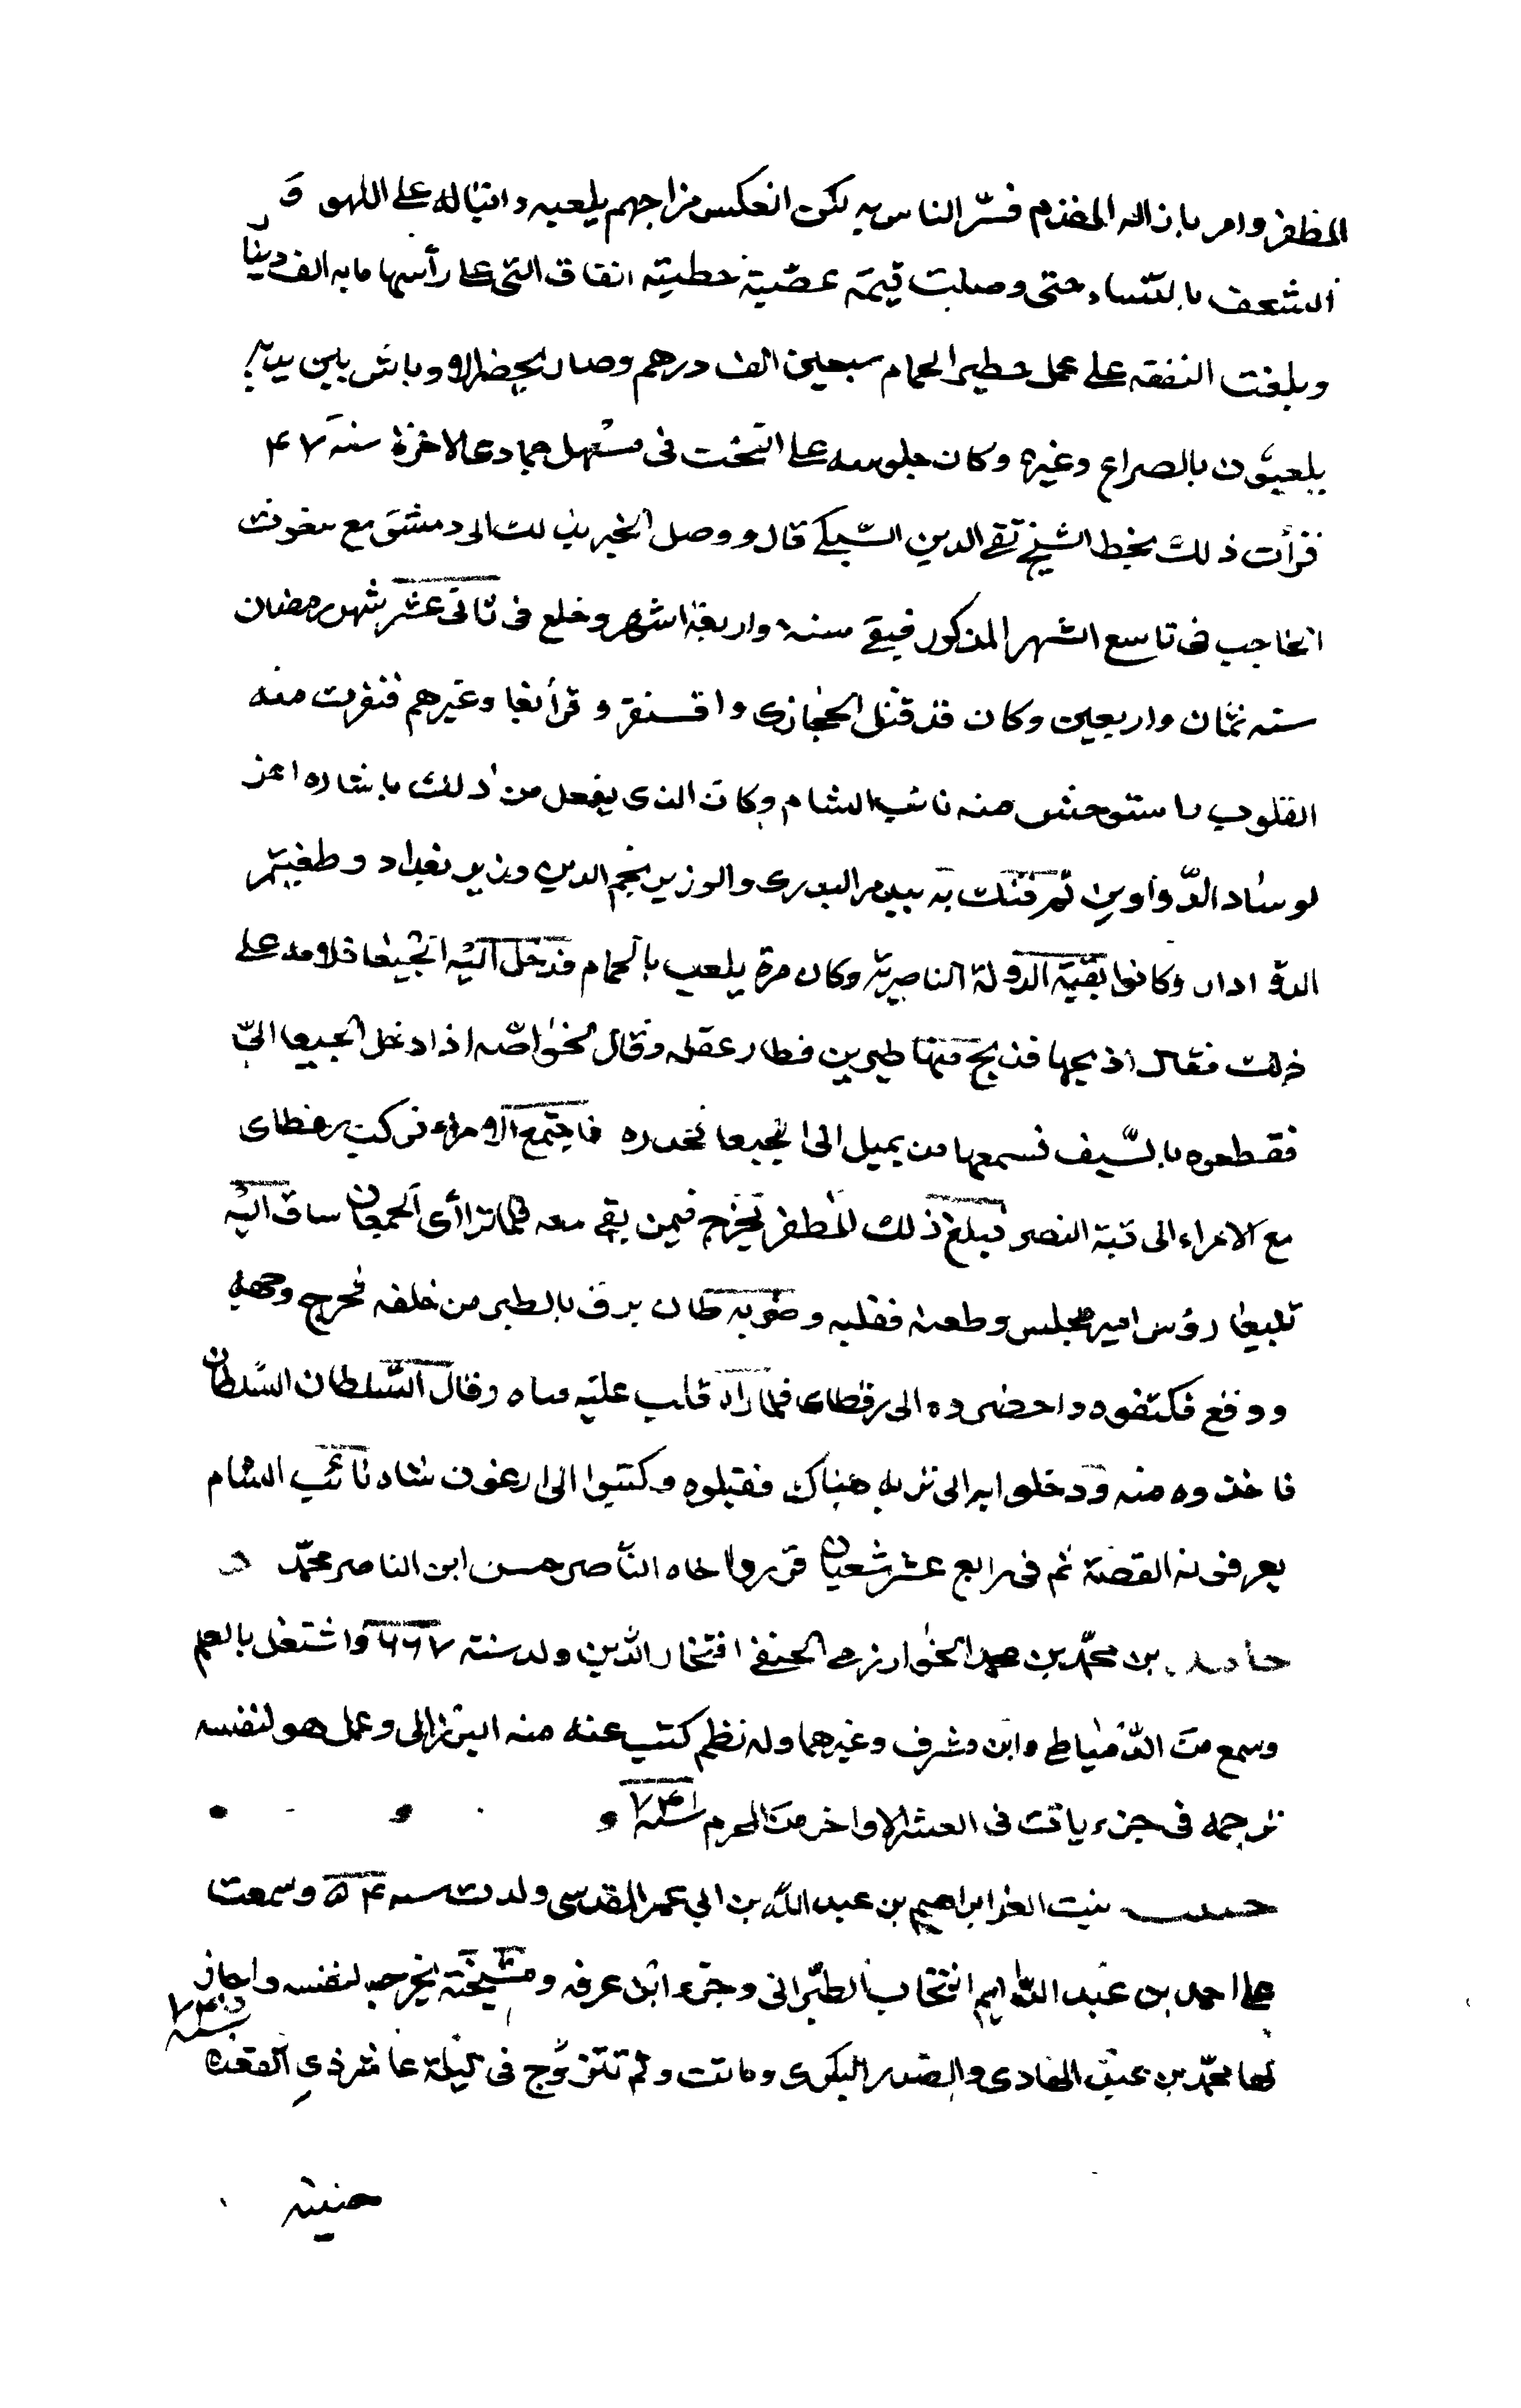 المظفر وامر بازاله المخدم فسّر الناس به لكن انعكس مزاجهم بلعبه واقباله على اللهو وَ
الشعف بالنساء حتى وصلت قيمة عصّبة حطيته اتفاق التى على رأسها مايه الف دينار
وبلغت النفقه على عمل حطير الحمام سبعين الف درهم وصار يحضر الاوباش بين يديه
يلعبون بالصراع وغيره وكان جلوسه على التخت فى مستهل جمادى الاخرة سنة ۴۷
قرأت ذلك بخط الشيخ تقى الدين السّبكى قال ووصل الخبر بذلك الى دمشق مع
الحاجب فى تاسع الشهر المذكور فبقى سنة واربعة اشهر وخلع فى ثانى عشر شهر رمضان
سنه ثمان واربعين وكان قد قتل الحجازى واقسنقر و قرأبغا وغيرهم فنفرت منه
القلوب واستوحش منه نائب الشام وكان الذى يفعل من ذلك باشاره اعز
لو شاد الدّواوين ثم فتك به بيدمر البدرى والوزير نجم الدين وزير بغداد وطغيتمر
الدوادار وكانوا بقيّة الدولة الناصرية وكان مرة يلعب بالحمام فدخل اليه الجيبغا فلامه على
ذلك فقال اذبحها فذبح منها طيرين فطار عقله وقال لخواصّه اذا دخل الجيبغا الىّ
فقطعوه بالسّيف فسمعها من يميل الى الجيبغا فحدره فاجتمع الامراء فركب رقطاى
مع الامراء الى قبة النصر فبلغ ذلك المظفر فخرج فيمن بقى معه فلما تراأى الجمعان ساق اليه
تلبيغا رؤس امير مجلس وطعنه فقلبه وضربه طان يرق بالطبر من خلفه فجرح وجهه
ووقع فكتفوه واحضروه الى رقطاى فلما رآه قلب عليه وقال السّلطان السّلطان
فاخذوه منه ودخلوا به الى تربة هناك فقتلوه وكتبوا الى ارغون شاه نائب الشام
يعرفونه القصّة ثم فى رابع عشر شعبان قرروا اخاه النّاصر حسن ابن الناصر محمّد
حامد بن محمّد بن محمد الخوارزمى الحنفى افتخار الدّين ولد سنة ۶۶۷ واشتغل بالعلم
وسمع من الدّمياطى وابن مشرف وغيرهما وله نظم كتب عنه منه البرزالى وعمل هو لنفسه
ترجمه فى جزء ياتت فى العشر الاواخر من المحرم سنة ۷۴۱
حبيبه بنت العز ابراهيم بن عبد الله بن ابى عمر المقدسى ولدت سنه ۵۴ وسمعت
على احمد بن عبد الدّايم انتخاب الطبّرانى وجزء ابن عرفه ومشيخته تخريجه لنفسه واجاز
لها محمّد بن عبد الهادى والصدر البكرى وماتت ولم تتزوّج فى ليلة عاشر ذى القعده
سنة ۷۴۵
حنيثه